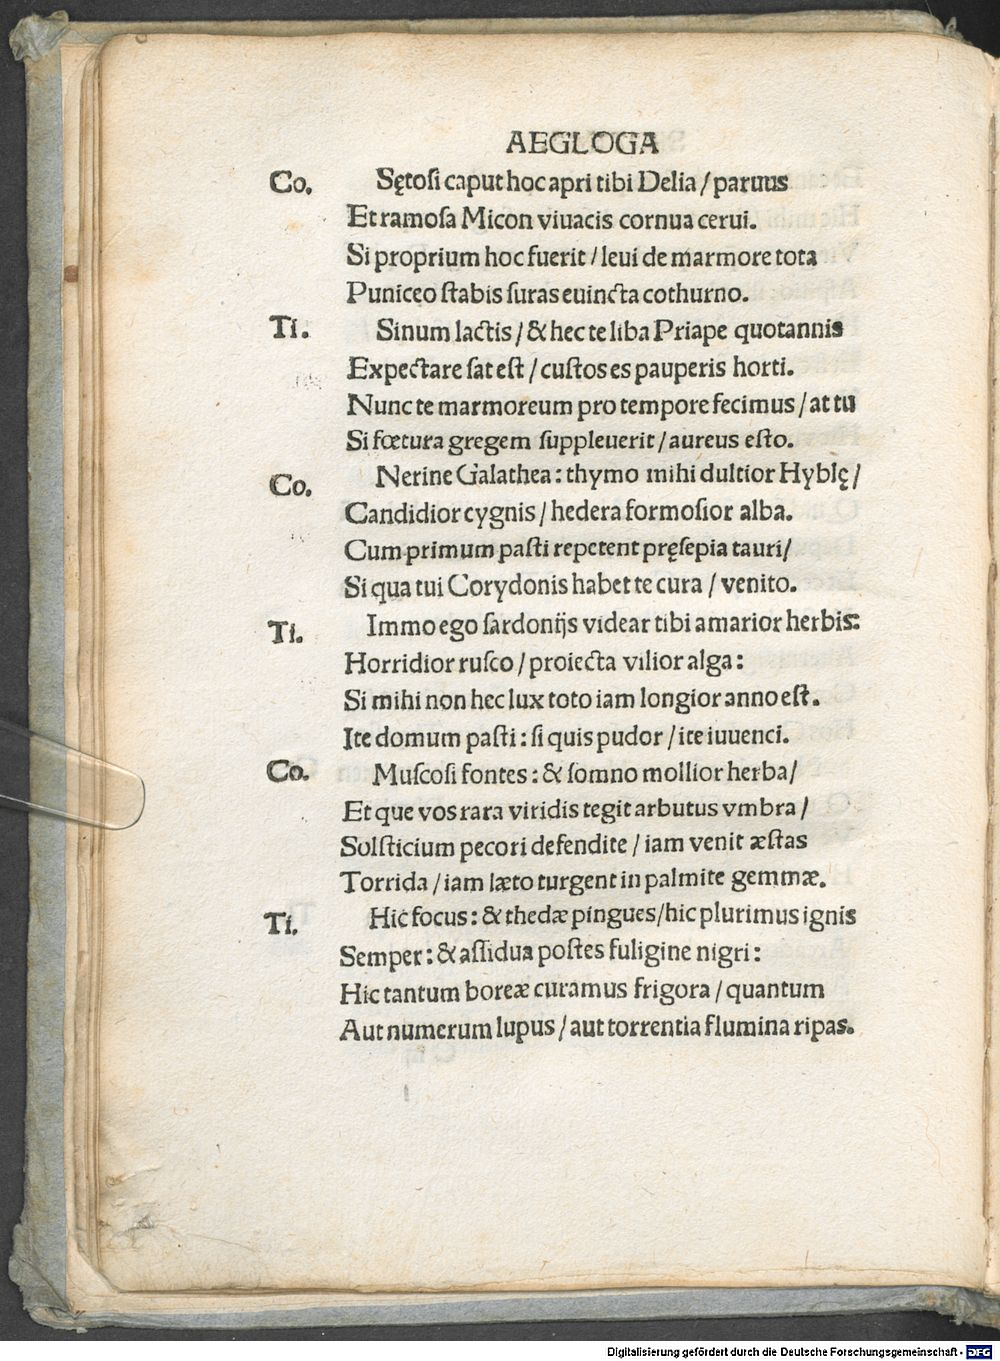 AEGLOGA
Co. Sętoſi caput hoc apri tibi Delia / paruus
Et ramoſa Micon viuacis cornua cerui.
Si proprium hoc fuerit / leui de marmore tota
Punicęo ſtabis ſuras euincta cothurno.
Ti. Sinum lactis / & hec te liba Priape quotannis
Expectare ſat eſt / cuſtos es pauperis horti.
Nunc te marmoreum pro tempore fecimus / at tu
Si fœtura gregem ſuppleuerit / aureus eſto.
Co. Nerine Galathea : thymo mihi dultior Hyblę /
Candidior cygnis / hedera formoſior alba.
Cum primum paſti repetent pręſepia tauri /
Si qua tui Corydonis habet te cura / venito.
Ti. Immo ego ſardonijs videar tibi amarior herbis:
Horridior ruſco / proiecta vilior alga :
Si mihi non hec lux toto iam longior anno eſt.
Ite domum paſti : ſi quis pudor / ite iuuenci.
Co. Muſcoſi fontes : & ſomno mollior herba /
Et que vos rara viridis tegit arbutus vmbra /
Solſticium pecori defendite / iam venit æſtas
Torrida / iam læto turgent in palmite gemmæ.
Ti. Hic focus : & thedæ pingues / hic plurimus ignis
Semper : & aſſidua poſtes fuligine nigri :
Hic tantum boreæ curamus frigora / quantum
Aut numerum lupus / aut torrentia flumina ripas.
Digitalisierung gefördert durch die Deutsche Forschungsgemeinschaft - DFG